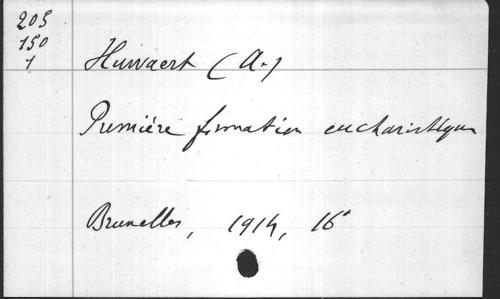 205
150
1
Huwaert (A.)
Première formation eucharistique
Bruxelles, 1914, 16°